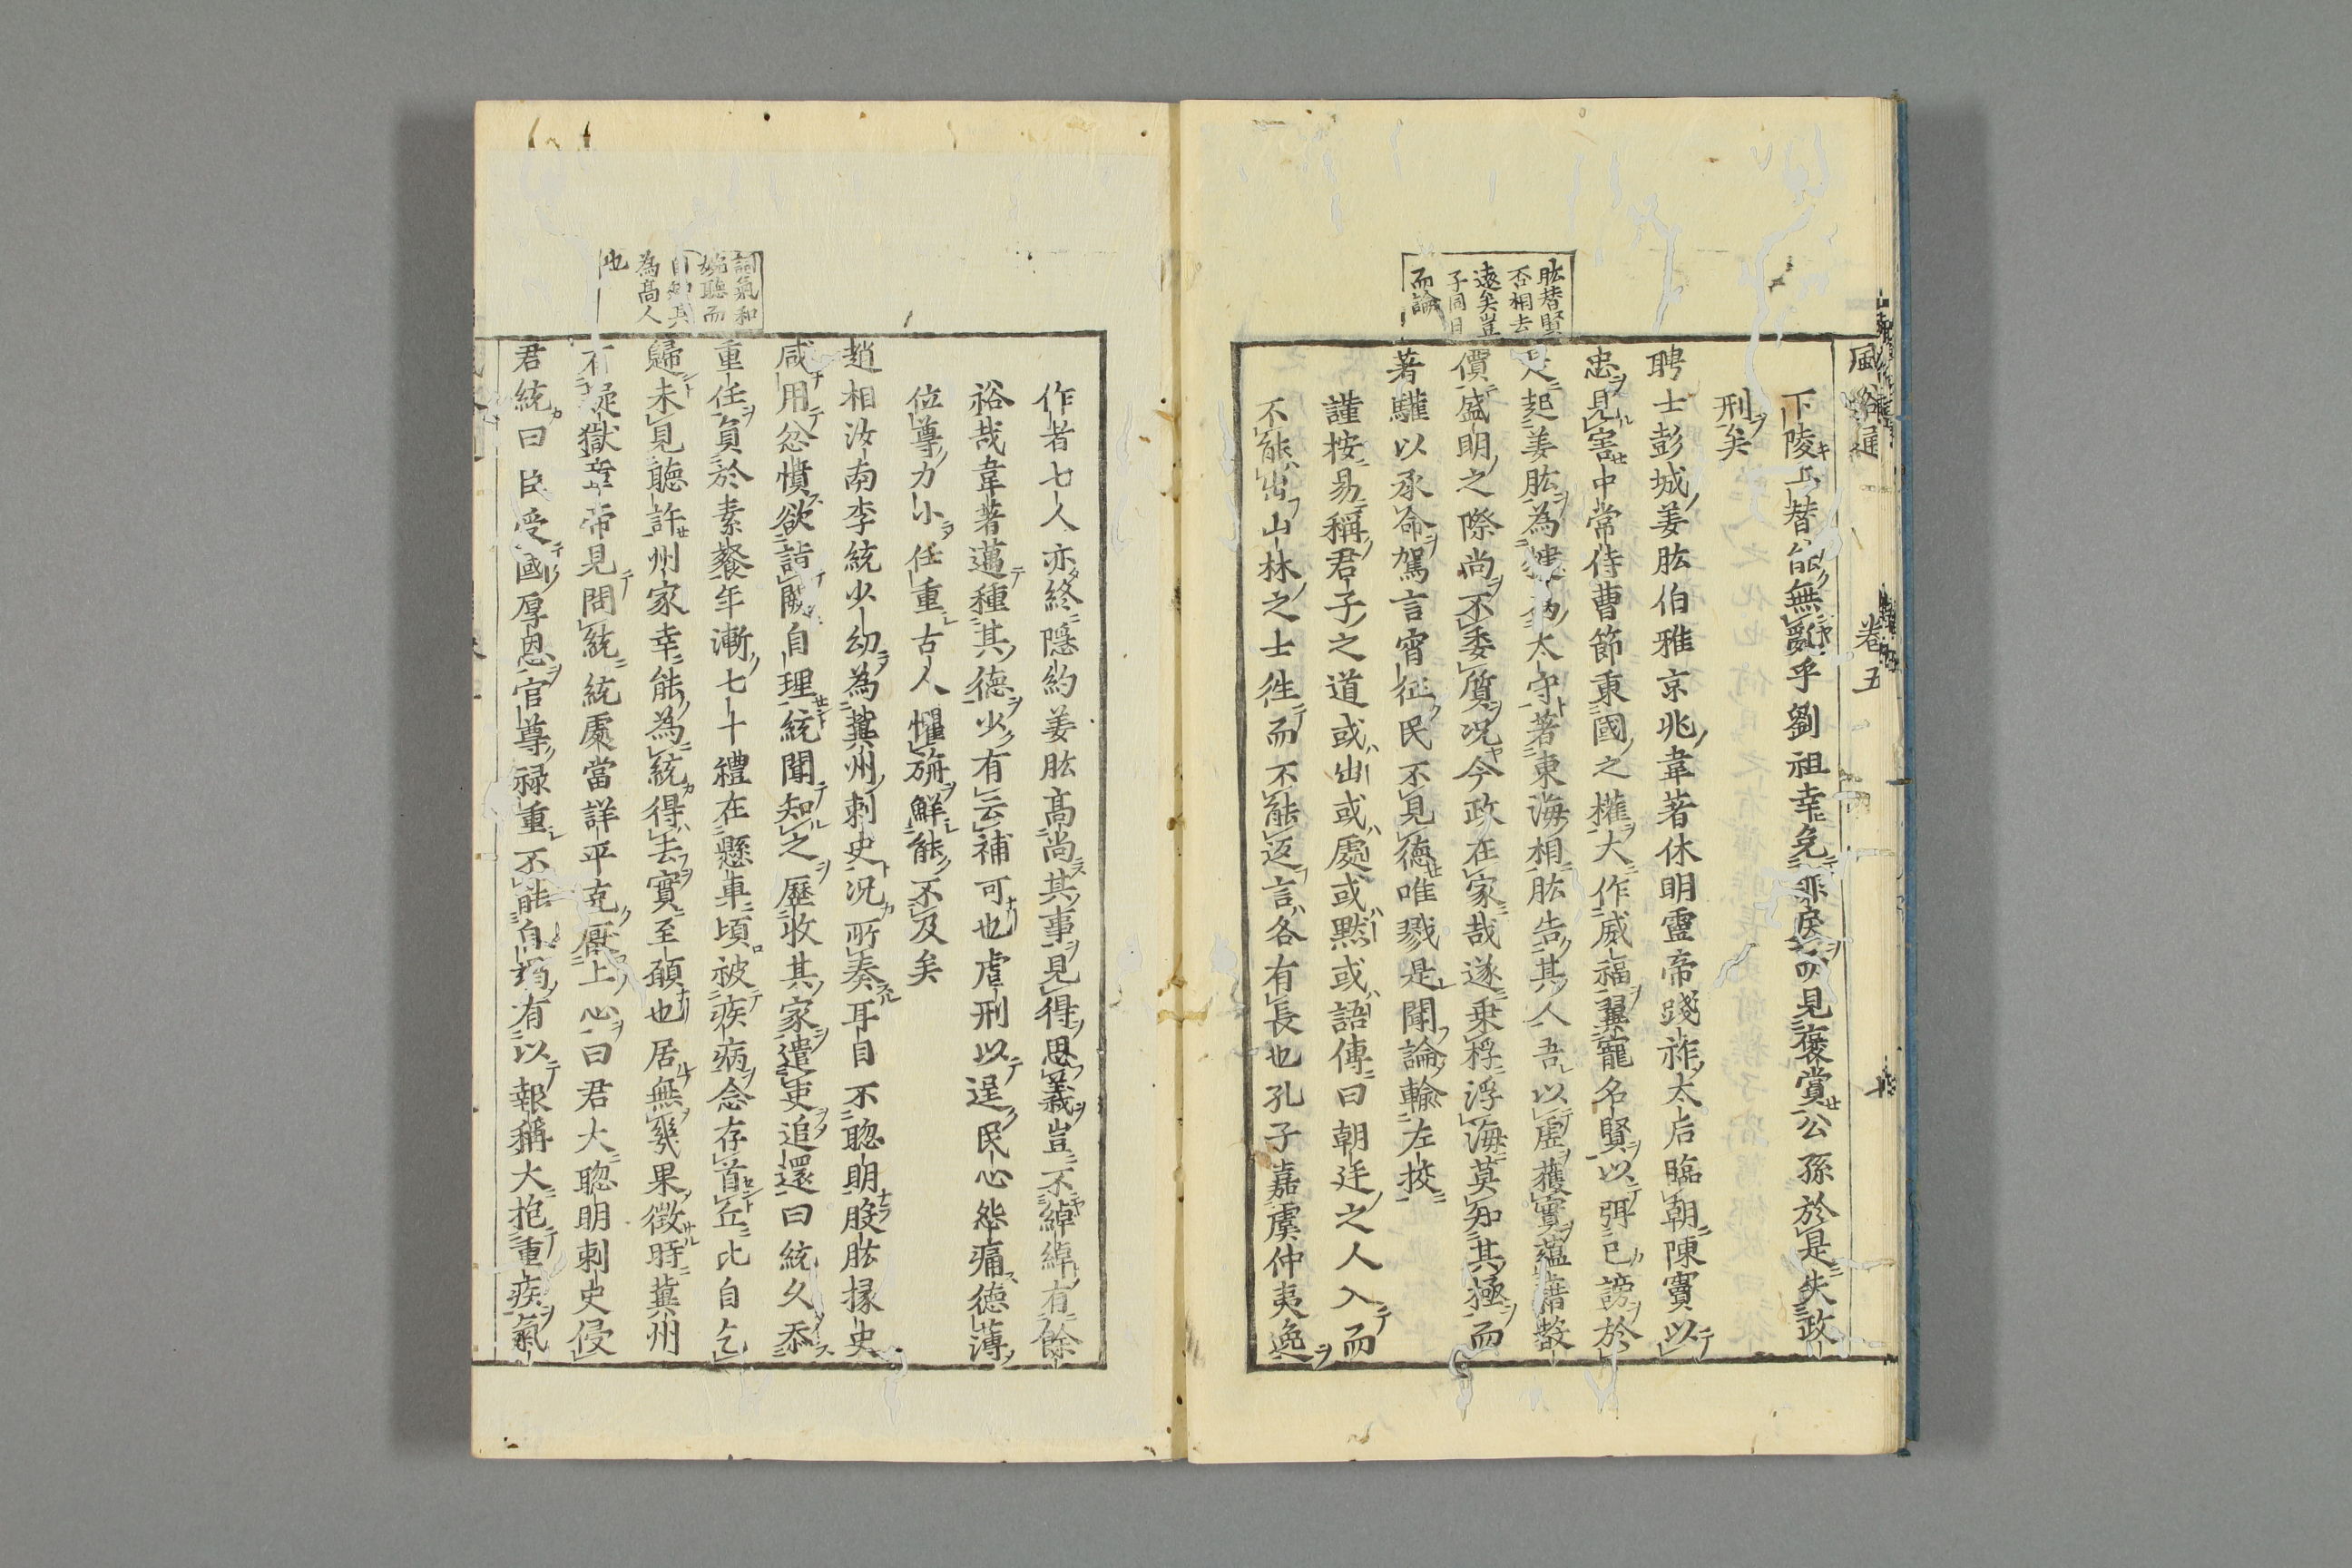 風俗通 卷五 十
下陵上替能無亂乎劉祖幸免罪戾而見褒賞公孫於是失政
刑矣
聘士彭城姜肱伯雅京兆韋著休明靈帝踐祚太后臨朝陳竇以
忠見害中常侍曹節秉國之權大作威福冀寵名賢以弭己謗於
是起姜肱為犍為太守著東海相肱告其人吾以虛獲實蘊藉聲
價盛明之際尚不委質况今政在家哉遂乗桴浮海莫知其極而
著驩以承命駕言宵征民不見德唯戮是聞論輸左挍
謹按易稱君子之道或出或處或黙或語傳曰朝廷之人入而
不能出山林之士徃而不能返言各有長也孔子嘉虞仲夷逸
肱替賢
否相去
遠矣豈
子同日
而論
作者七人亦終隱約姜肱高尚其事見得思義豈不綽綽有餘
裕哉韋著邁種其德少有云補可也虐刑以逞民心怨痛德薄
位尊力小任重古人懼旃鮮能不及矣
趙相汝南李統少幼為冀州刺史况所奏耳目不聦明股肱掾史
咸用忿憤欲詣闕自理統聞知之歷收其家遣吏追還曰統久忝
重任負於素餐年漸七十禮在懸車頃被疾病念存首丘比自乞
歸未見聽許州家幸能為統得去實至願也居無幾果徵時冀州
有疑獄章帝見問統統處當詳平克厭上心曰君大聦明刺史侵
君統曰臣受國厚恩官尊祿重不能自竭有以報稱大抱重疾氣
詞氣和
婉聽而
自知其
為高人
也